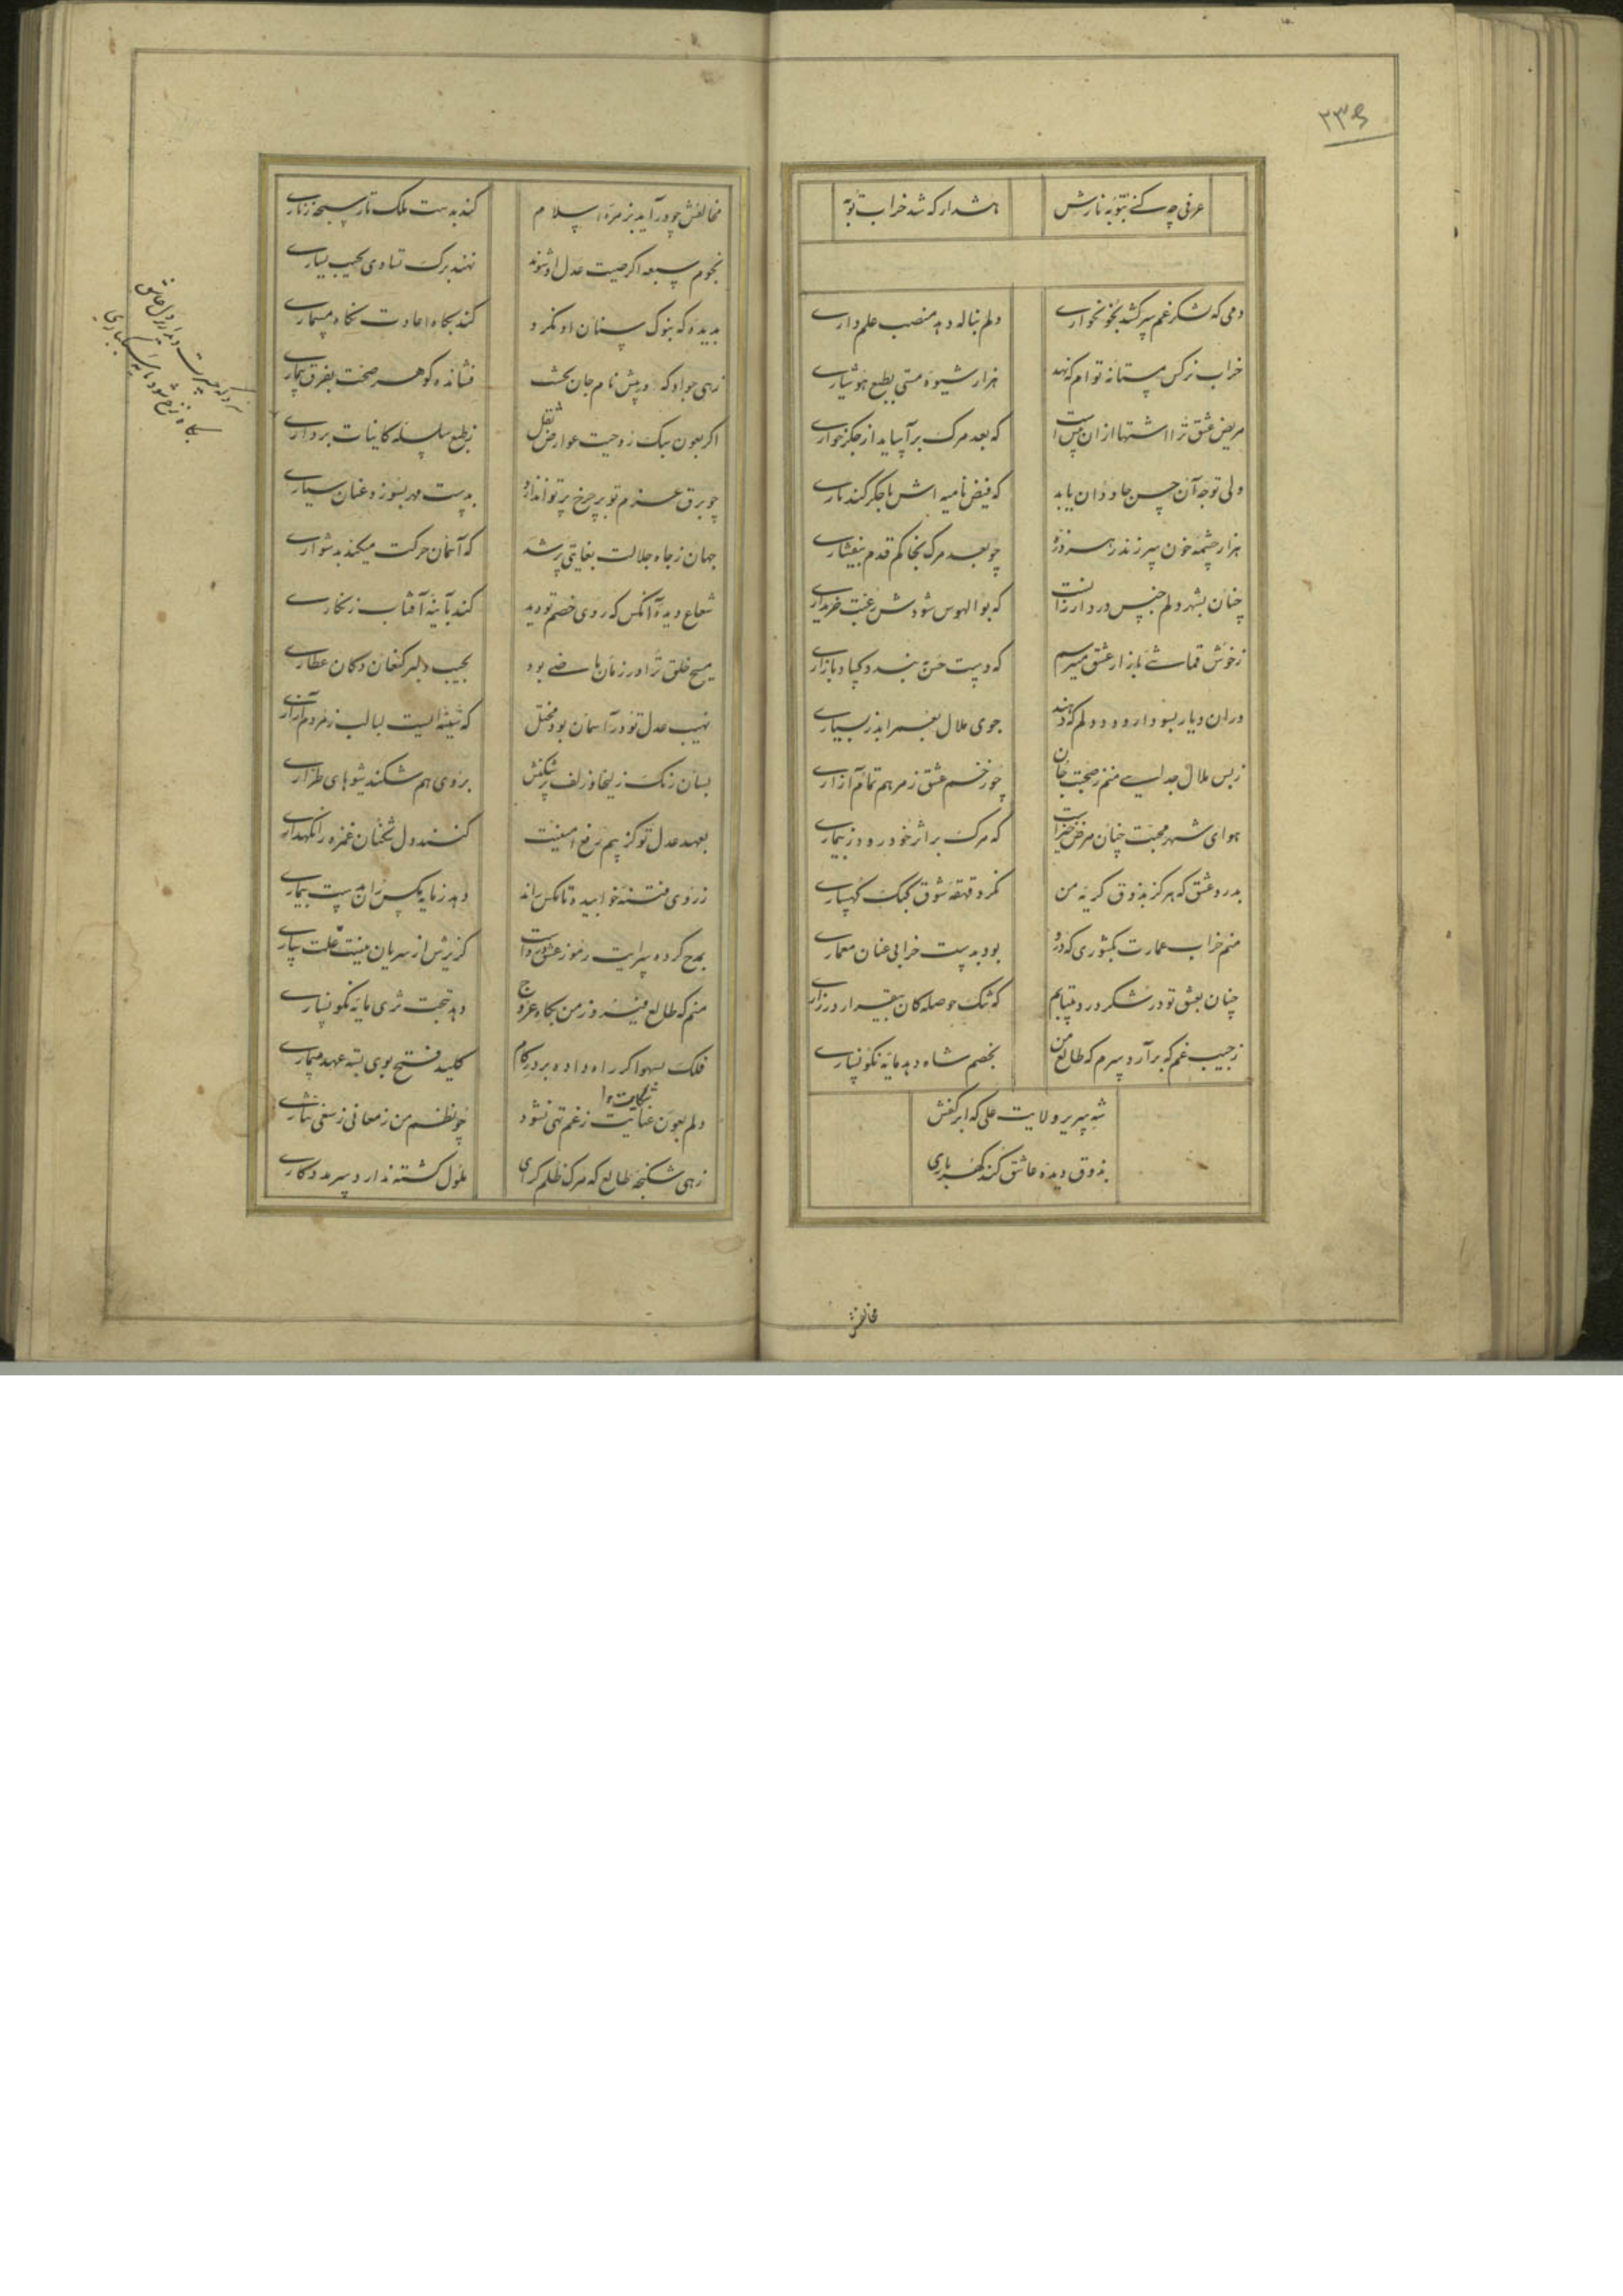 ۲۳۶
عرفی چه کنی بتوبه نازش
هشدار که شد خراب توبه
دمی که لشکر غم سر کشد بخونخواری
دلم بناله دهد منصب علمداری
خراب نرکس مستانه توام که نهد
هزار شیوه مستی بطبع هوشیاری
مریض عشق ترا اشتها ازان پیش است
که بعد مرک بر آساید از جکرخواری
ولی توجه آن حسن جاودان یابد
که فیض نامیه اش با جکر کند یاری
هزار چشمه خون سر زند ز هر ذره
چو بعد مرک بخاکم قدم بیفشاری
چنان بشهر دلم جنس درد ارزانست
که بوالهوس شودش رغبت خریداری
ز خوش قماشی بازار عشق میرسم
که دست حسن نهد و کساد بازاری
دران دیار بسودا رود دلم که دهند
جوی ملال بغم
ز بس ملال جدایی منم ز صحبت جان
چو زخم عشق ز مرهم تمام آزاری
هوای شهر محبت چنان مرض خیز است
که مرک بر اثر خود رود ز بیماری
بدرد عشق که هرکز بذوق کریه من
نکرد قهقه شوق کبک کهساری
منم خراب عمارت بکشوری که درو
بود بدست خرابی عنان معماری
چنان بعشق تو در لشکر درد بیتابم
که تنک حوصلکان بیقرار در زاری
ز جیب غم که برآرد سرم که طالع من
بخصم شاه دهد مایه نکونساری
شه سریر ولایت علی که ابر کفش
بذوق دیده عاشق کند کهرباری
مخالفش
مخالفش چو درآید بزمره اسلام
کند بدست ملک تار سبحه زناری
نجوم سبعه اکر صیت عدل او شنوند
نهند برک تساوی بجیب سیاری
بدیده که بنوک سنان او نکرد
کند بکاه اعادت نکاه مسماری
زهی جواد که در پیش نام جان بخشت
فشانده کوهر صحت بفرق بیماری
اکر بعون سبک روحیت عوارض ثقل
ز طبع سلسله کاینات برداری
چو برق عزم تو بر چرخ پرتو اندازد
بدست مهر بسوزد عنان سیاری
جهان ز جاه جلالت بغایتی پر شد
که آسمان حرکت میکند بدشواری
شعاع دیده آنکس که روی خصم تو دید
کند بآینه آفتاب زنکاری
مسیح خلق ترا در زمان ماضی بود
بجیب دلبر کنعان دکان عطاری
نهیب عدل تو در آسمان بود مختل
که شیشه ایست لبالب ز مردم آزاری
بسان رنک زلیخا و زلف پرشکنش
بروی هم شکند شیوهای طراری
بعهد عدل تو کز بیم رفع امنیت
کنند دل شکنان غمزه را نکهداری
ز روی فتنه خوابیده تا مکس راند
دهد زمایه
بمدح کرده سرایت رموز عشق و رواست
کزیرش از سریان نیست علت ساری
منم که طالع فیروز من بکاه عروج
دهد بتحت ثری مایه نکونساری
فلک بسهو اکر راه داده بر در کام
کلید فتح بوی بسته عهد مسماری
دلم بعون عنایت ز غم تهی نشود
شکایت
چو نظم من ز معانی ز سعی نثاری
زهی شکنجه طالع که مرک ظلم کرای
ملول کشته ندارد سر مددکاری